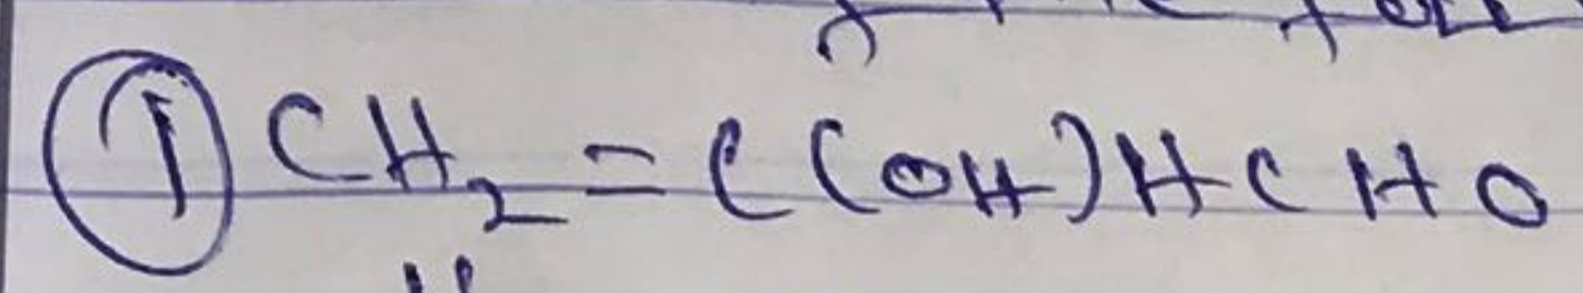 ① CH₂ = C(OH)HCHO